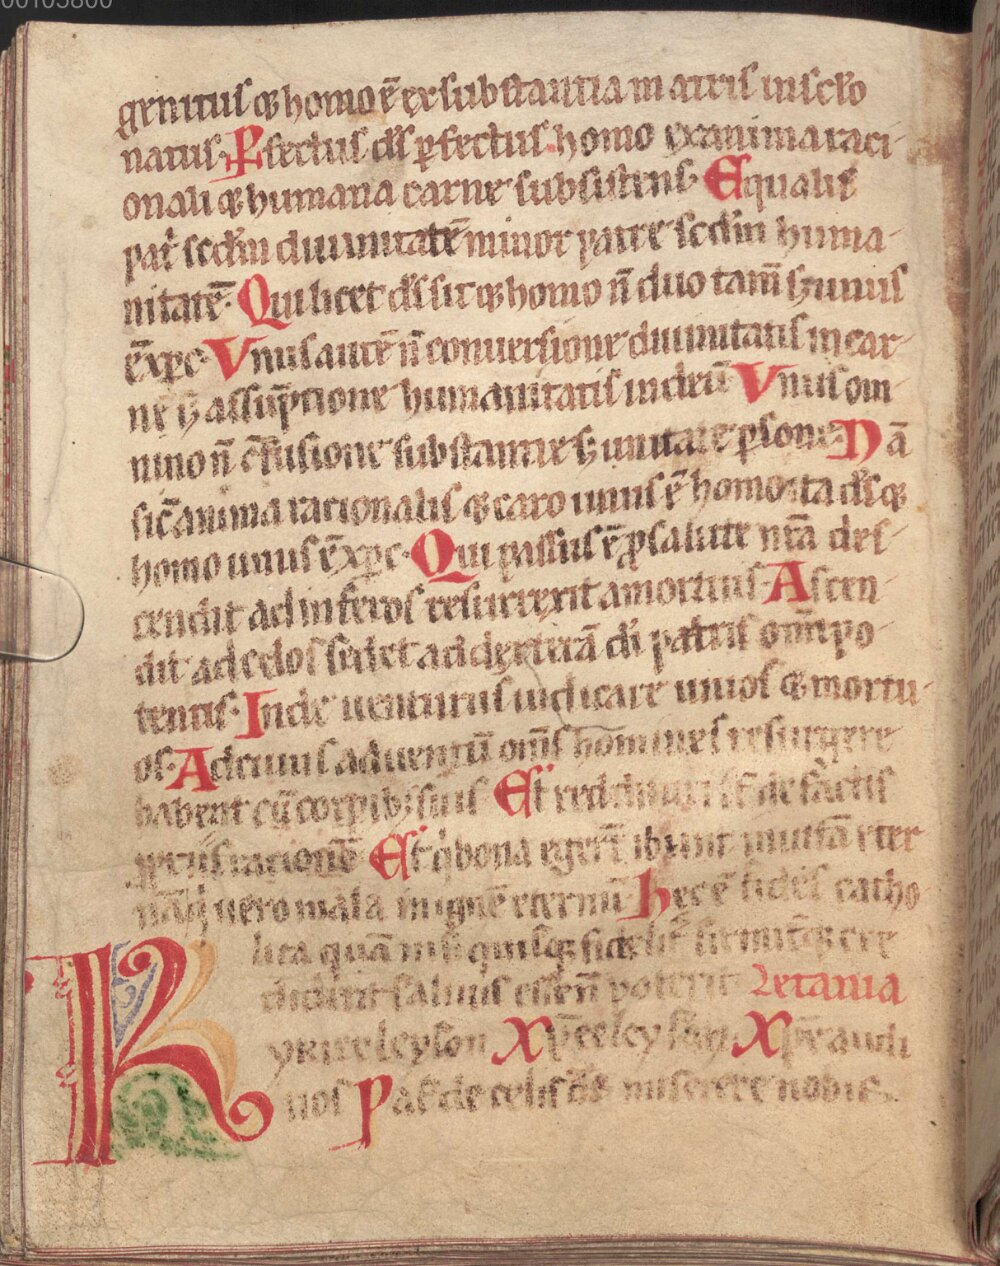 00103800
genitus ⁊ homo ē ex substantia matris in sclo
natus. Pfectus ds pfectus homo ex anima raci-
onali ⁊ humana carne subsistens. Equalis
pat̉ scdm diuinitatē minor patre scdm huma-
nitatē. Qui licet ds sit ⁊ homo n̄ duo tam̄ s; unus
ē xpc. Vnus autē n̄ conuersione diuinitatis in car-
ne s; assūptione humanitatis in deū Vnus om-
nino n̄ cfusione substantie s; unitate psone. Nā
sic̄ anima racionalis ⁊ caro unus ē homo ita ds ⁊
homo unus ē xpc. Qui passus ē p salute nrā des-
cendit ad inferos resurrexit a mortuis. Ascen-
dit ad celos sedet ad dexterā di patris om̄ipo-
tentis. Inde uenturus iudicare uiuos ⁊ mortu-
os. Ad cuius aduentū om̄s homines resurgere
habent cū corpib; suis Et reddituri st̄ de factis
ppriis rationē Et q̇ bona egert̄ ibunt in uitā eter
nā q̇ uero mala in ignē eternū. Hec ē fides catho
lica quā nisi quisq; fidelit̉ firmit̉q; cre
diderit saluus esse n̄ poterit Letania
Kyrieeleyson Xp̄eeleyson Xp̄e audi
nos Pat̉ de celis ds miserere nobis.